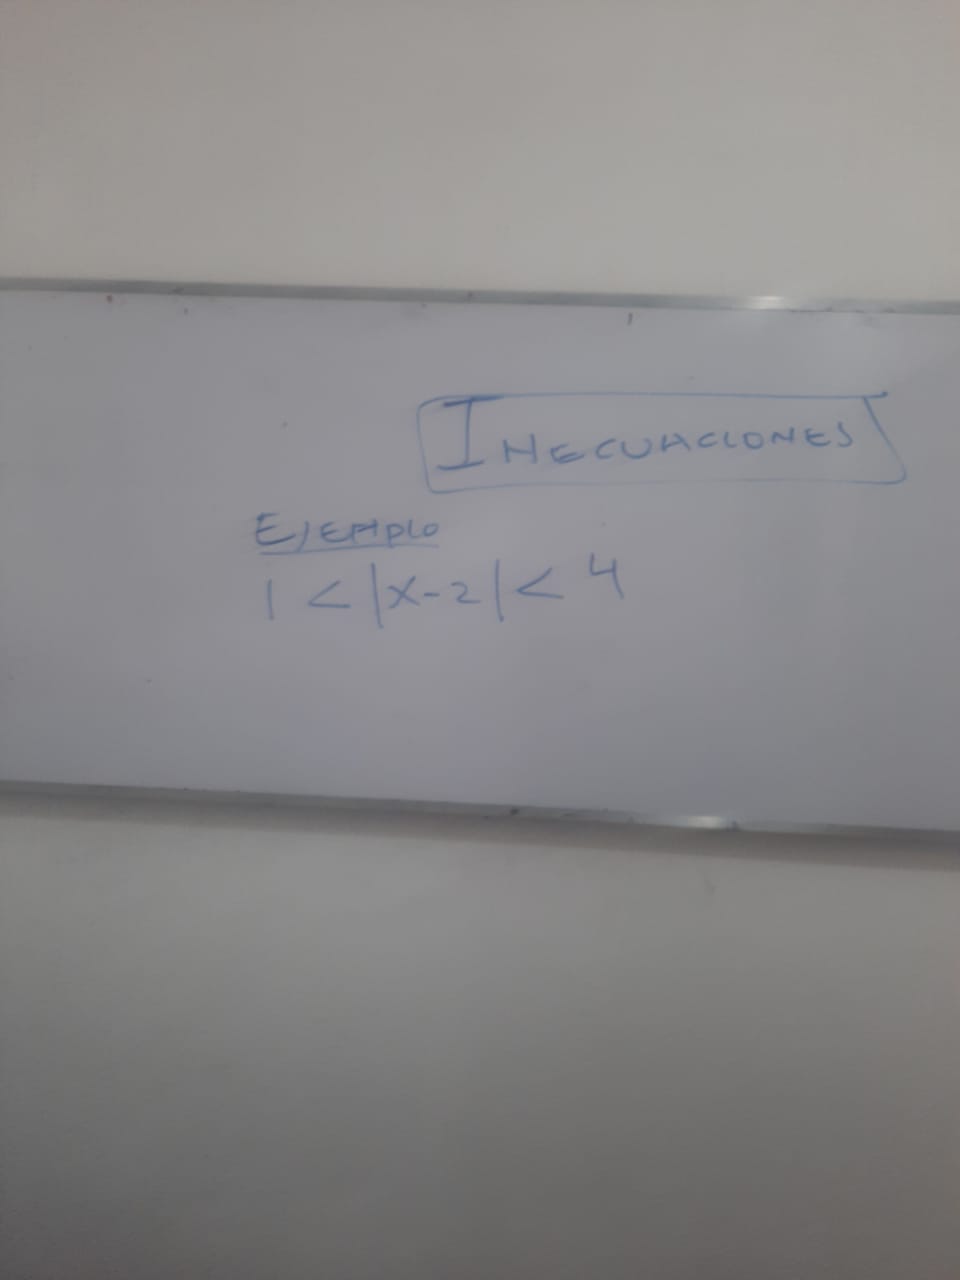 INECUACIONES
EJEMPLO
1 < |x-2| < 4